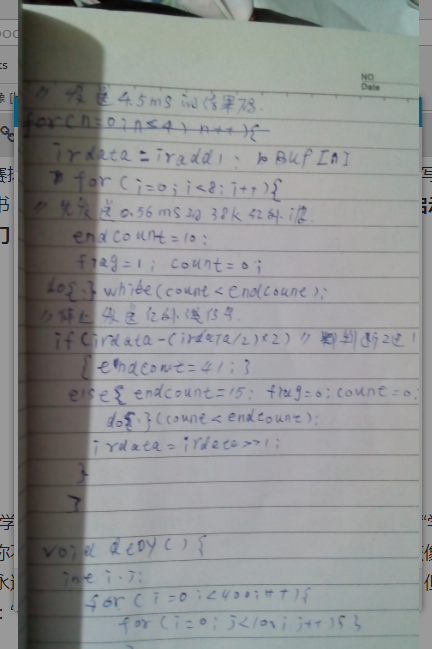 NO
Date
// 发送4.5ms的结果码.
for(n=0;n≤4;n++){
irdata=iradd1; Buf[n]
for(i=0;i<8;i++){
// 先发送0.56ms的38k红外波
endcount=10;
frag=1; count=0;
do{.}while(count<endcount);
// 停止发送红外信号
if(irdata-(irdata/2)*2) //
{endcont=41;}
else{endcount=15; frag=0; count=0;
do{.}(count<endcount);
irdata=irdata>>1;
}
}
void deDY(){
int i.j;
for(i=0;i<400;i++){
for(i=0;j<10;j++){}